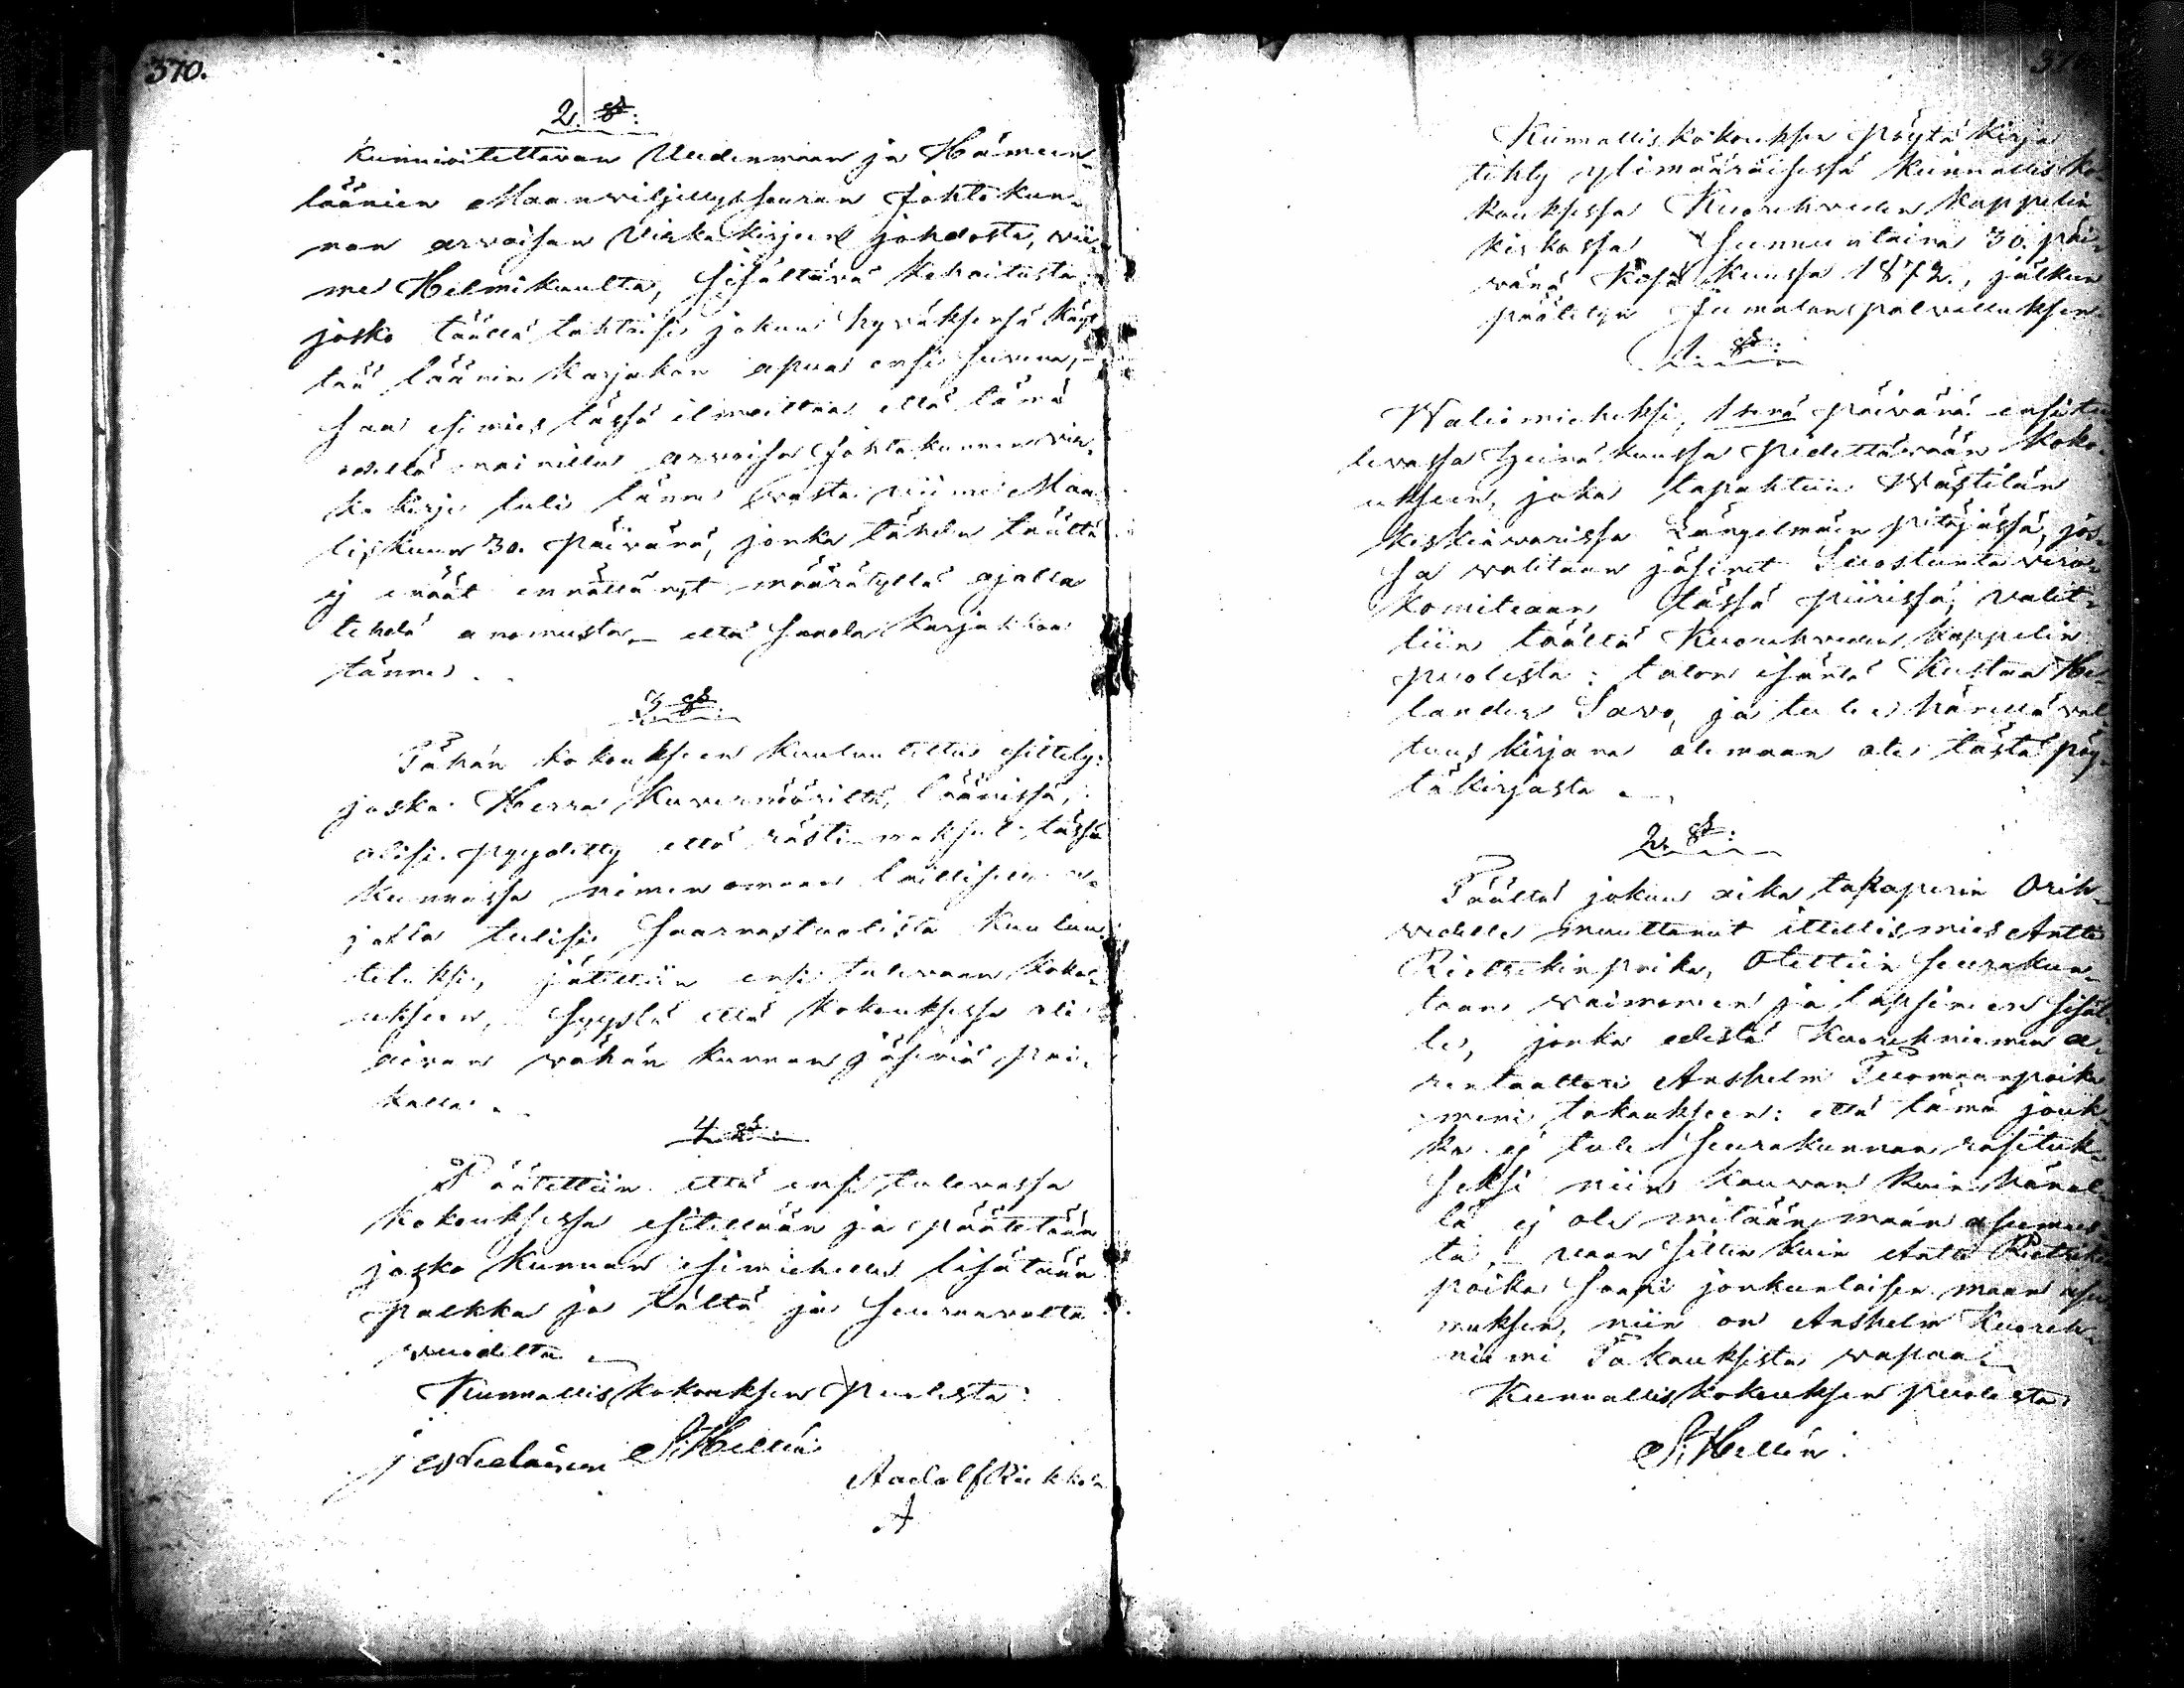 370.
2. §:
Kunnioitettavan Uudenmaan ja Hämeen-
läänien Maanviljellysseuran Johtokun-
nan arvoisan Virkakirjeen johdosta, vii-
me Helmikuulta, sisältävä kehoitusta
josko täällä tahtoisi jokuu hyväksensä käyt-
tää läänin Karjakon apua ensi suvena,-
saa esimies tässä ilmoittaa että tämä
edellä mainittu arvoisa Johtokunnan vir-
kakirje tuli tänne vasta viime Maa-
liskuun 30. päivänä, jonka tähden täältä
ej enäät ennättänyt määrätyllä ajalla
tehdä anomusta,- että saada Karjakkoa
tänne.
3 §:
Tähän kokoukseen kuulutettu esittely:
joska Herra Kuvernööriltä, läänissä,
olisi pyydetty että rästi maksut tässä
kunnassa nimen omaan laillisella a-
jalla tulisi Saarnastuolista kuulu-
tetuksi, jätettiin ensi tulevaan koko-
ukseen, syystä että kokouksessa oli
aivan vähän kunnan jäseniä pai-
kalla.
4 §:
Päätettiin että ensi tulevassa
kokouksessa esitellään ja päätetään
josko Kunnan esimiehelle lisätään
palkka ja tältä ja seuraavalta
vuodelta.
Kunnallis kokouksen puolesta:
S. Hellén
Aadolf
A
Kunnallis kokouksen pöytä kirja
tehty ylimääräisessä kunnallis ko-
kouksessa Kuorehveden Kappelin
kirkossa Sunnuntaina 30. päi-
vänä Kesäkuussa 1872., jälkeen
päätetyn Jumalan palvelluksen
1. §:
Valiomieheksi, 1senä päivänä ensi tu-
levassa Heinäkuussa pidettävään koko-
ukseen, joka tapahtuu Västilän
keskievarissa Längelmäen pitäjässä, jos-
sa valitaan jäsenet Suostuntaveron
komiteaan tässä piirissä, valit-
tiin täällä Kuorehveden kappelin
puolesta: talon isäntä Kustaa He-
lander Savo, ja tulee hänellä val-
tuus kirjana olemaan ote tästä pöy-
täkirjasta.
2. §:
Täältä jokuu aika takaperin Orih-
vedelle muuttanut ittellismies Antti
Rietrikinpoika, Otettiin Seurakun-
taan vaimonen ja lapsinen sisäl-
le, jonka edestä Kuorehniemen a-
rentaattori Anshelm Tuomaanpoika
meni takaukseen: että tämä jouk-
ko ej tule Seurakunnan rasituk-
seksi niin kauvan kuin hänel-
lä ej ole mitään maan asumus-
ta,- vaan sitten kuin Antti Rietrikin
poika saapi jonkunlaisen maan asu-
muksen, niin on Anshelm Kuoreh-
niemi Takauksesta vapaa.
Kunnallis kokouksen puolesta:
S. Hellén: